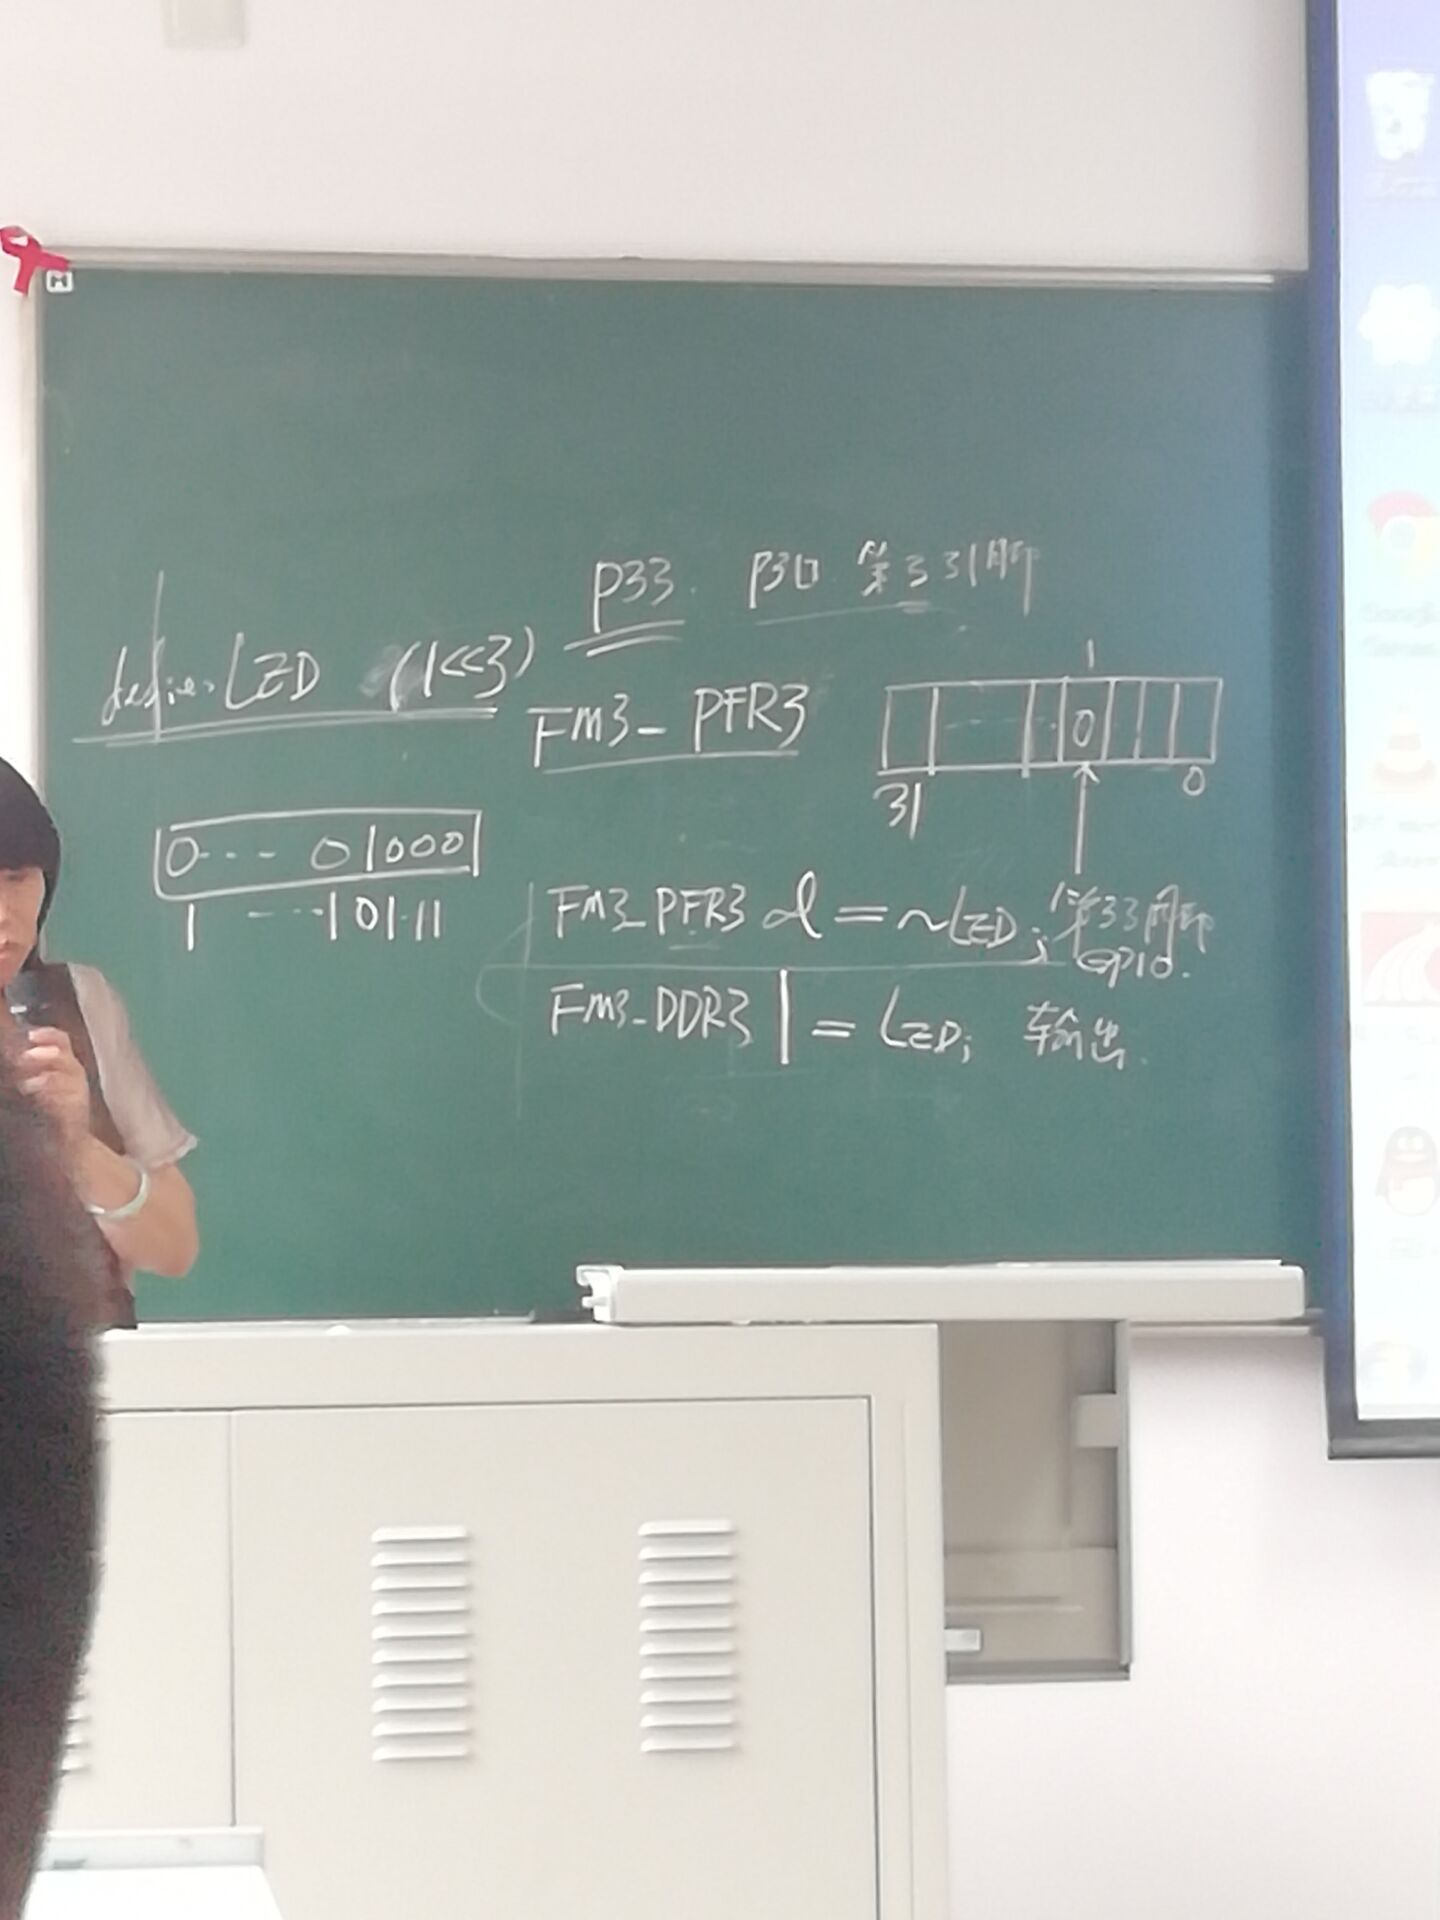 P33. P3口 第3引脚
define LED (1<<3)
FM3_PFR3
1
0
31 0
0 --- 01000
1 ---10111
FM3_PFR3 &=~LED; 第3引脚
GPIO.
FM3_DDR3 |= LED; 输出.